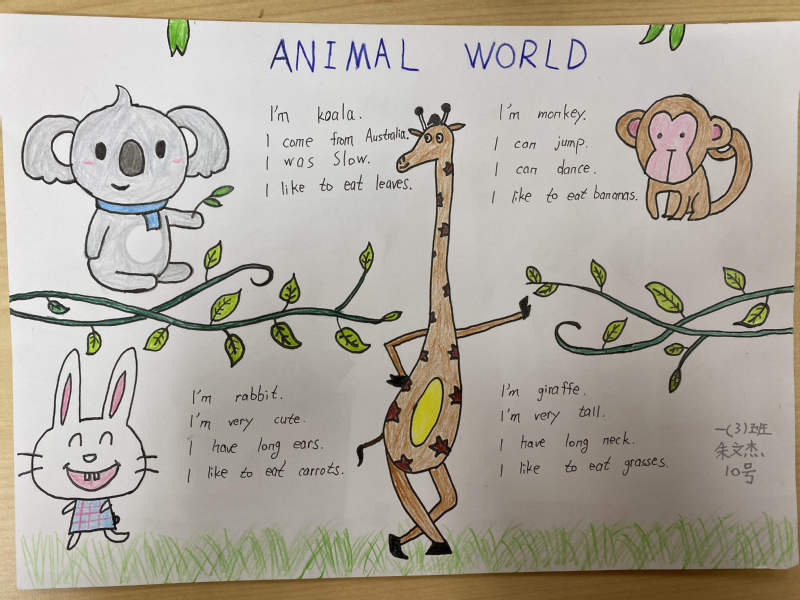 ANIMAL WORLD
I'm koala.
I come from Australia.
I was Slow.
I like to eat leaves.
I'm monkey.
I can jump.
I can dance.
I like to eat bananas.
I'm rabbit.
I'm very cute.
I have long ears.
I like to eat carrots.
I'm giraffe.
I'm very tall.
I have long neck.
I like to eat grasses.
一(3)班
朱文杰、
10号